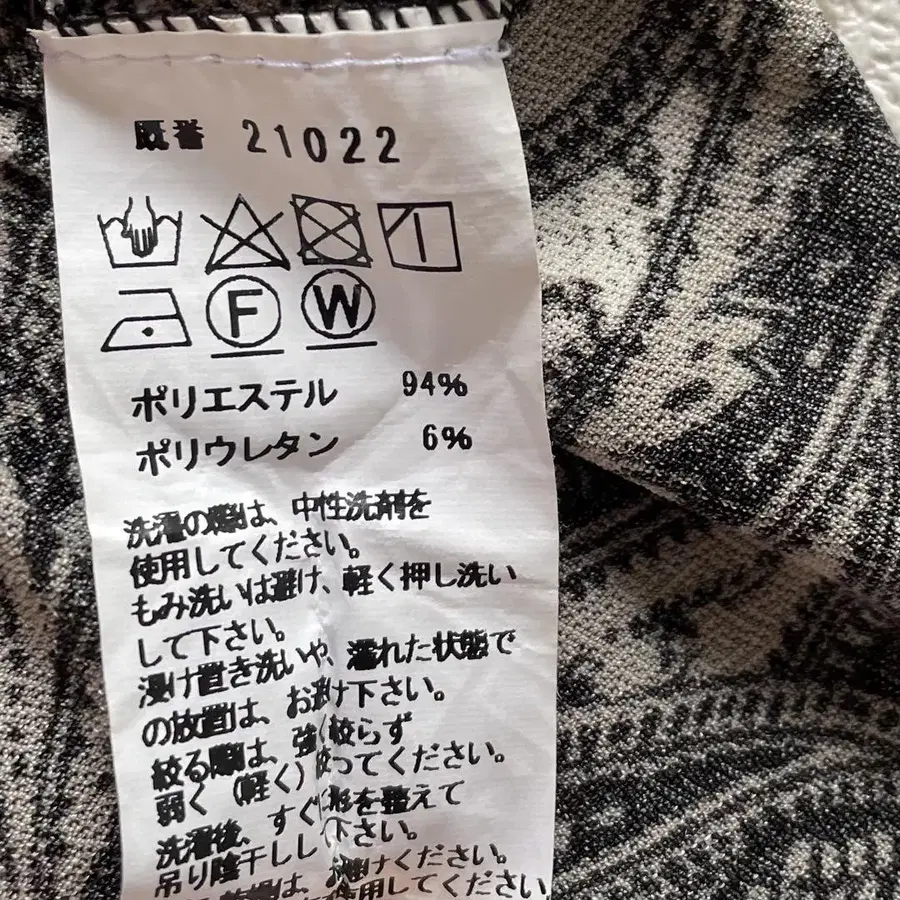 既番 21022
F W
ポリエステル 94%
ポリウレタン 6%
洗濯の際は、中性洗剤を
使用してください。
もみ洗いは避け、軽く押し洗い
して下さい。
浸け置き洗いや、濡れた状態で
の放置は、お避け下さい。
絞る際は、強く絞らず
弱く(軽く)絞ってください。
洗濯後、すぐ形を整えて
吊り陰干しし下さい。
は、お避けください。
使用してください